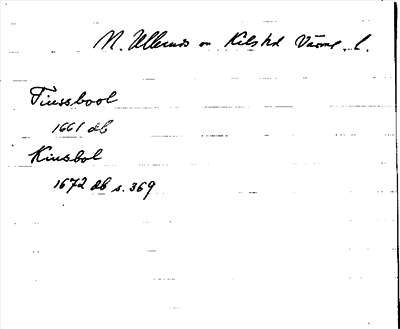 N. Ullerud sn Kils hd Värml. l.
Tiussbool
1661 db
Kiusbol
1672 db s. 369